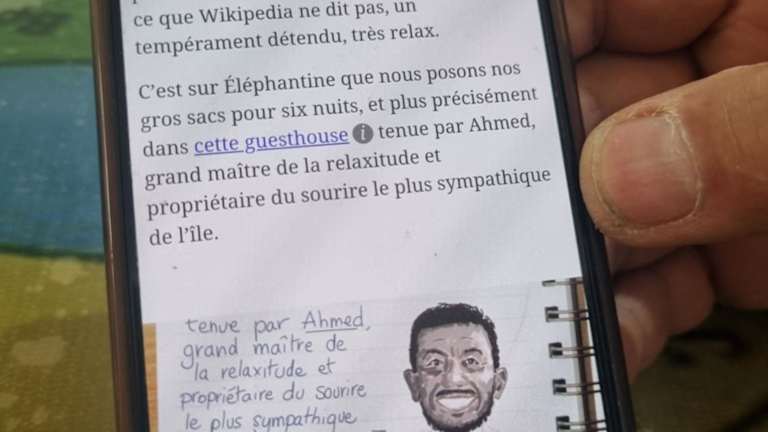 ce que Wikipedia ne dit pas, un
tempérament détendu, très relax.
C'est sur Éléphantine que nous posons nos
gros sacs pour six nuits, et plus précisément
dans cette guesthouse i tenue par Ahmed,
grand maître de la relaxitude et
propriétaire du sourire le plus sympathique
de l'île.
tenue par Ahmed,
grand maître de
la relaxitude et
propriétaire du sourire
le plus sympathique